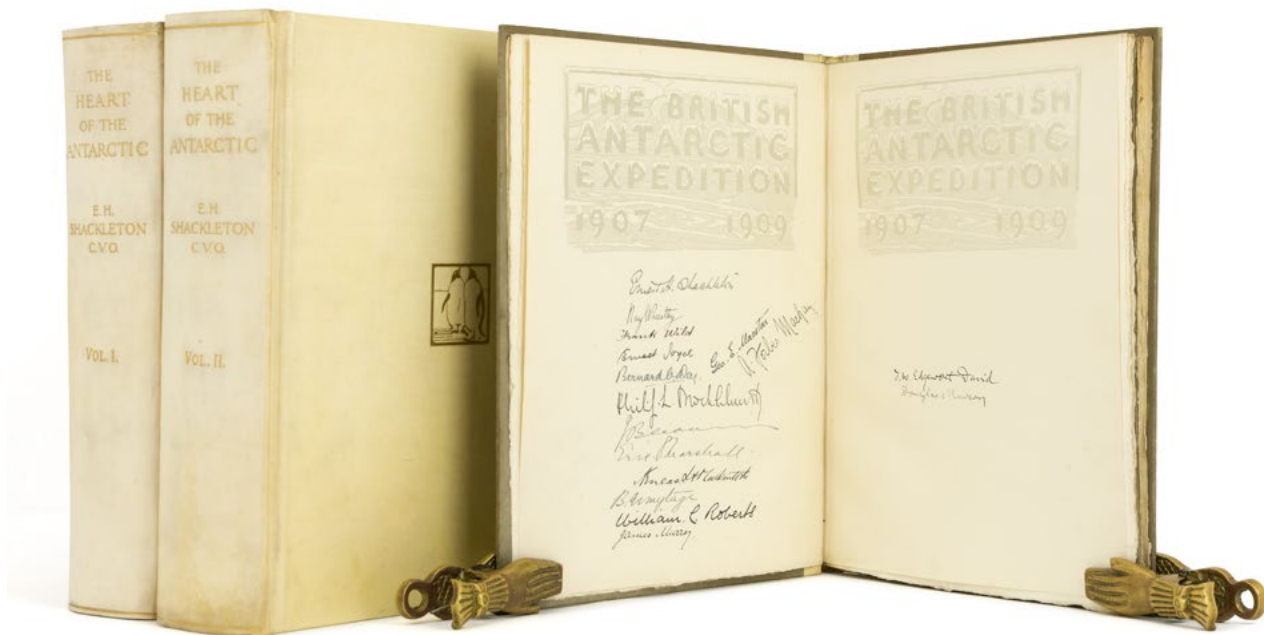 THE
HEART
OF THE
ANTARCTIC
E.H.
SHACKLETON
C.V.O.
VOL. I.
THE
HEART
OF THE
ANTARCTIC
E.H.
SHACKLETON
C.V.O.
VOL. II.
THE BRITISH
ANTARCTIC
EXPEDITION
1907 1909
Ernest H. Shackleton
Frank Wild
Ernest Joyce
Bernard C. Day
Geo. E. Marston
A. Forbes Mackay
Philip L Brocklehurst
Eric Marshall
B. Armytage
William C Roberts
James Murray
THE BRITISH
ANTARCTIC
EXPEDITION
1907 1909
T.W. Edgeworth David
Douglas Mawson